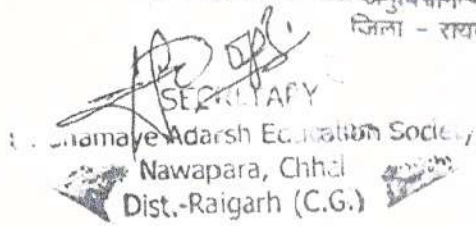 जिला - राय
SECRETARY
Adarsh Education Society,
Nawapara, Chhal
Dist.-Raigarh (C.G.)